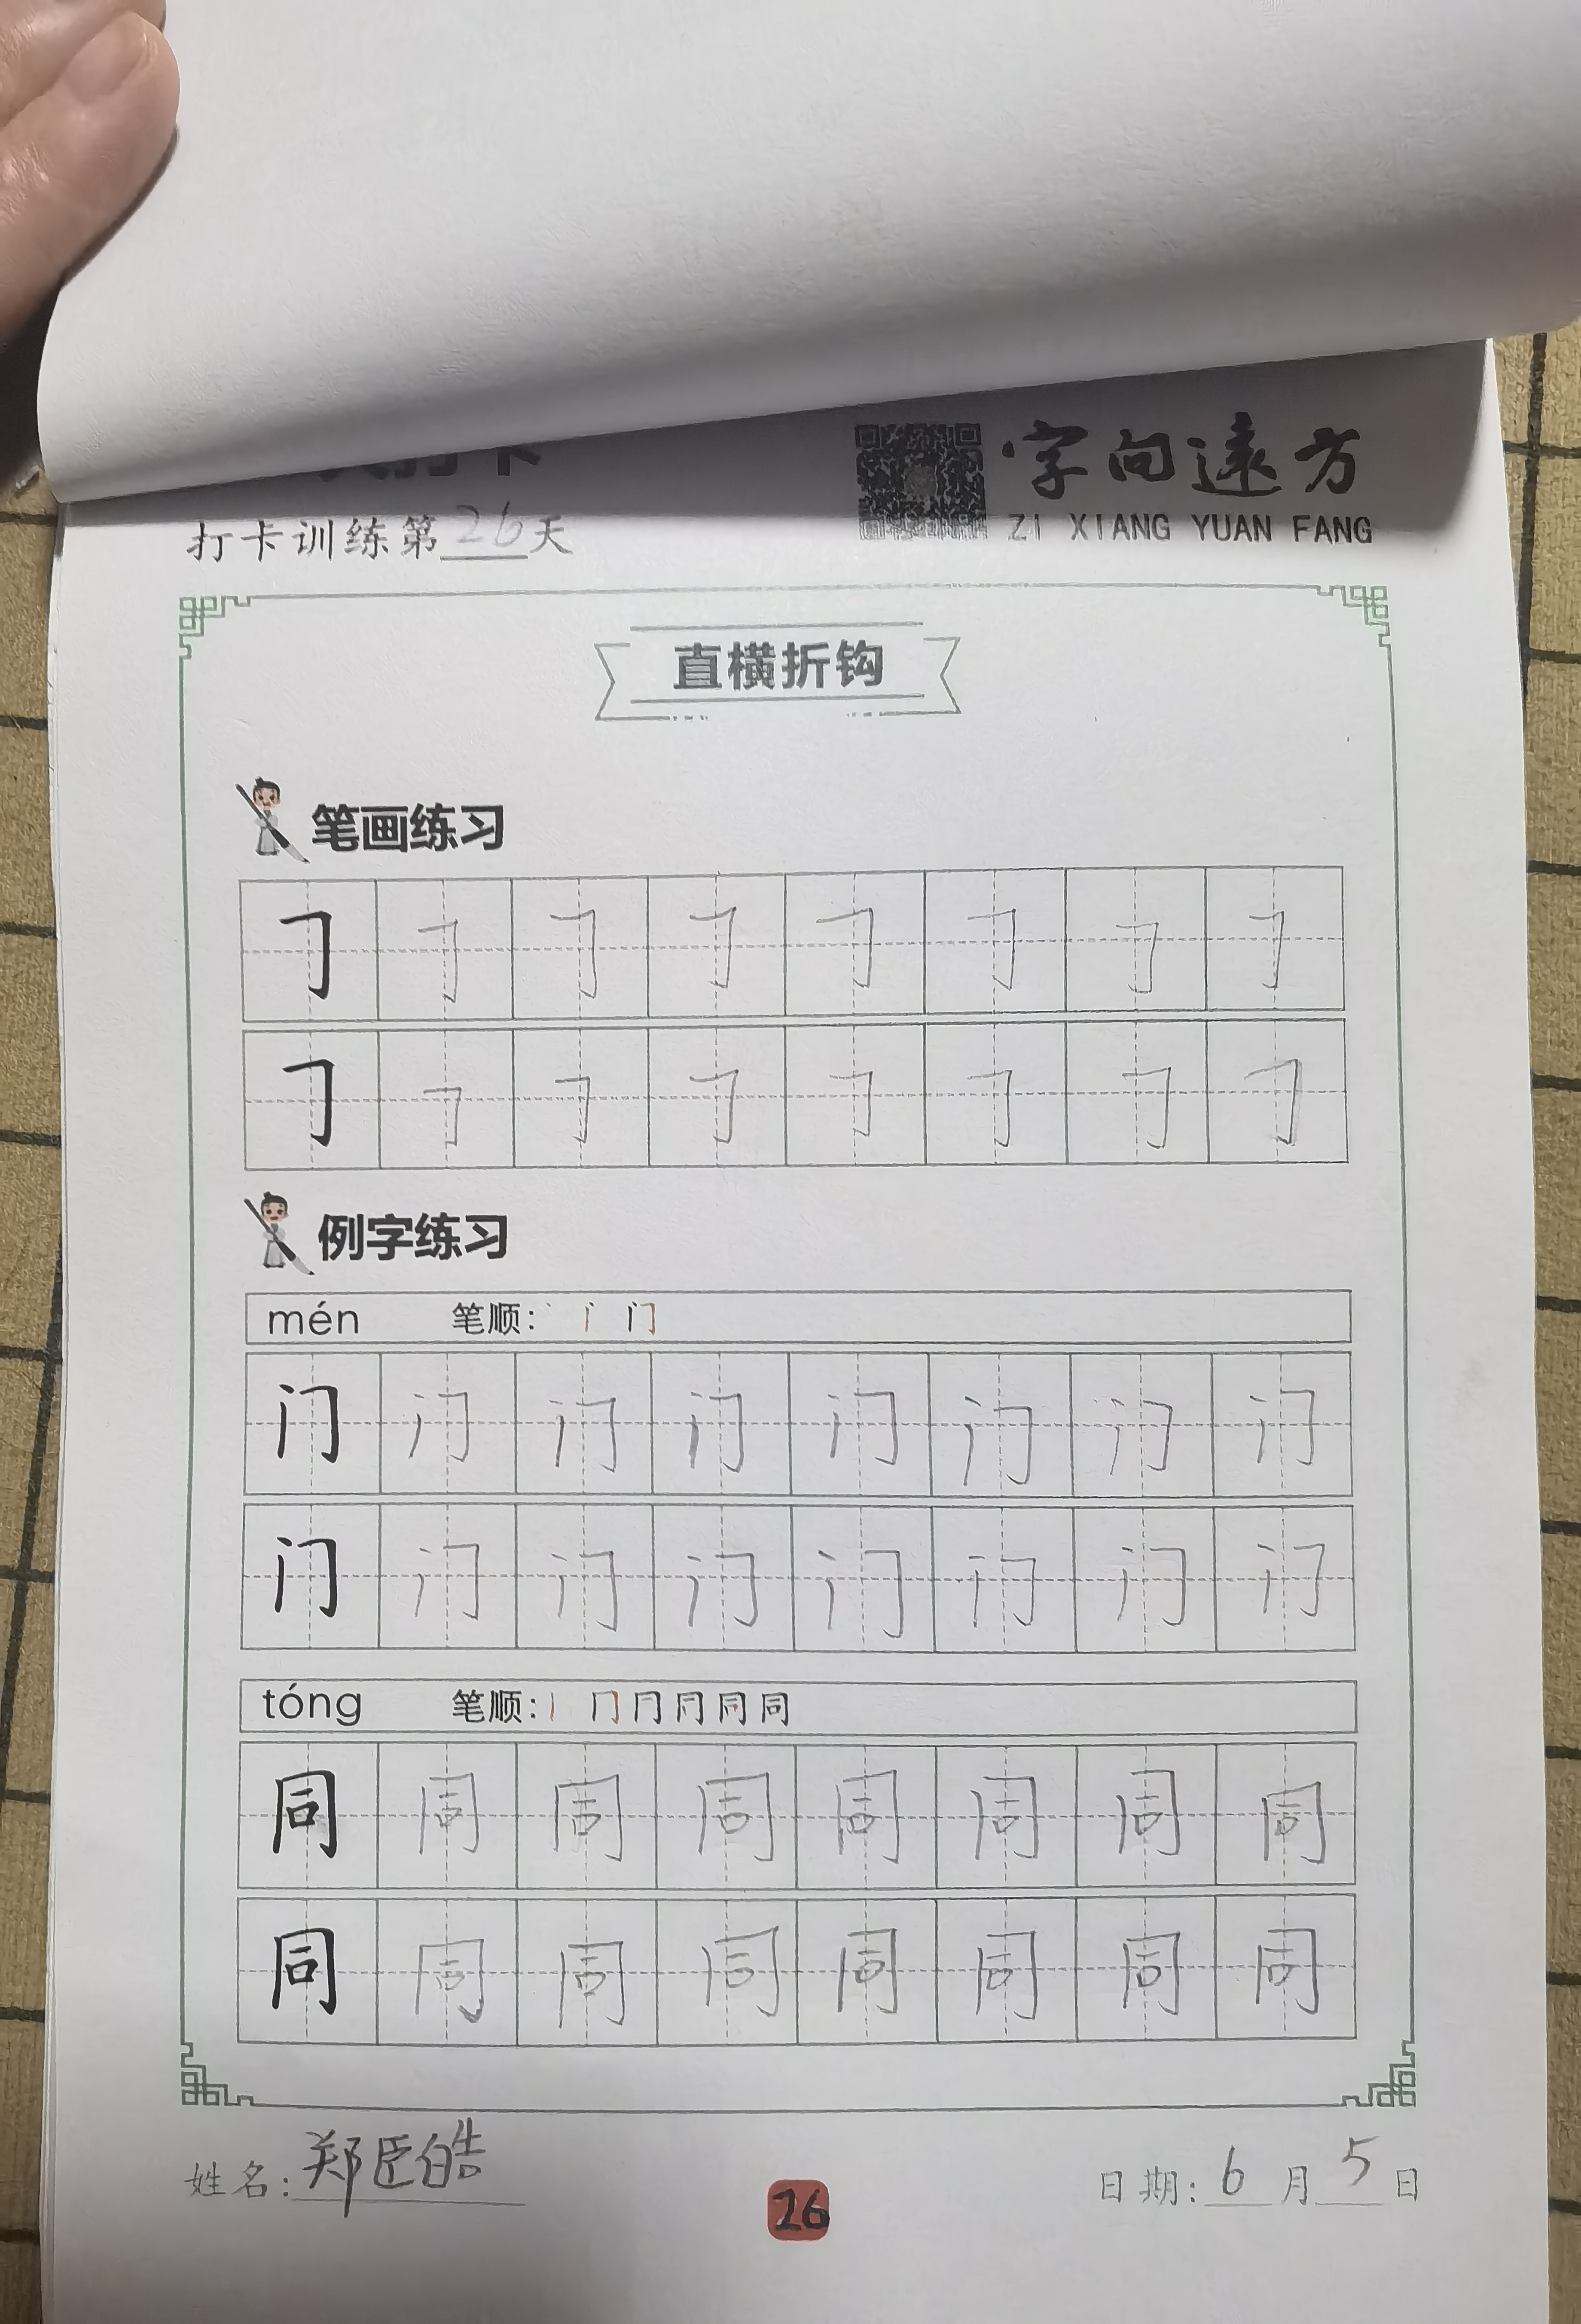 打卡
字向遠方
打卡训练第26天
ZI XIANG YUAN FANG
直横折钩
笔画练习
𠃌 𠃌 𠃌 𠃌 𠃌 𠃌 𠃌 𠃌
𠃌 𠃌 𠃌 𠃌 𠃌 𠃌 𠃌 𠃌
例字练习
mén 笔顺：丶 门
门 门 门 门 门 门 门 门
门 门 门 门 门 门 门 门
tóng 笔顺：丨 冂 同
同 同 同 同 同 同 同 同
同 同 同 同 同 同 同 同
姓名：郑臣皓
26
日期：6月5日